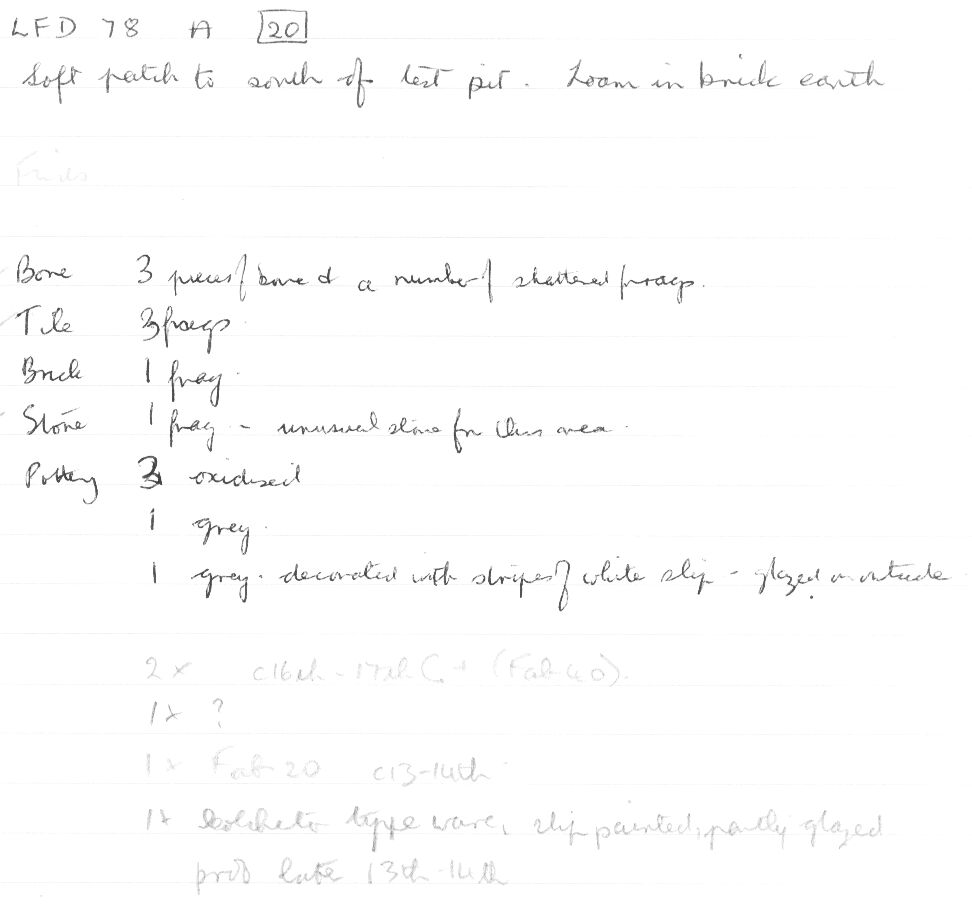 LFD 78 A 20
Soft patch to south of test pit. Loam in brick earth
Finds
Bone 3 pieces of bone & a number of shattered frags.
Tile 3 frags
Brick 1 frag.
Stone 1 frag - unusual stone for this area.
Pottery 3 oxidised
1 grey.
1 grey. decorated with stripes of white slip - glazed on outside
2x c16th-17th C + (Fab 40).
1x ?
1x Fab 20 c13-14th
1x Colchester type ware, slip painted, partly glazed
prob late 13th-14th